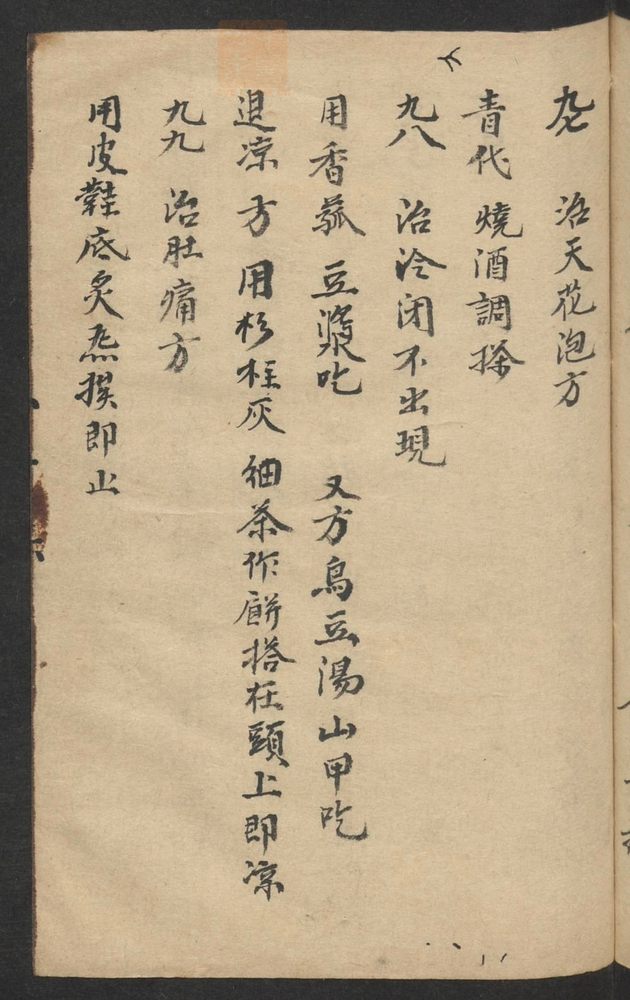 九七 治天花泡方
青代 燒酒調搽
九八 治冷闭不出現
用香菰 豆漿吃 又方烏豆湯山甲吃
退凉方 用杉柱灰 細茶作餅搭在頭上即凉
九九 治肚痛方
用皮鞋底炙熱摸即止